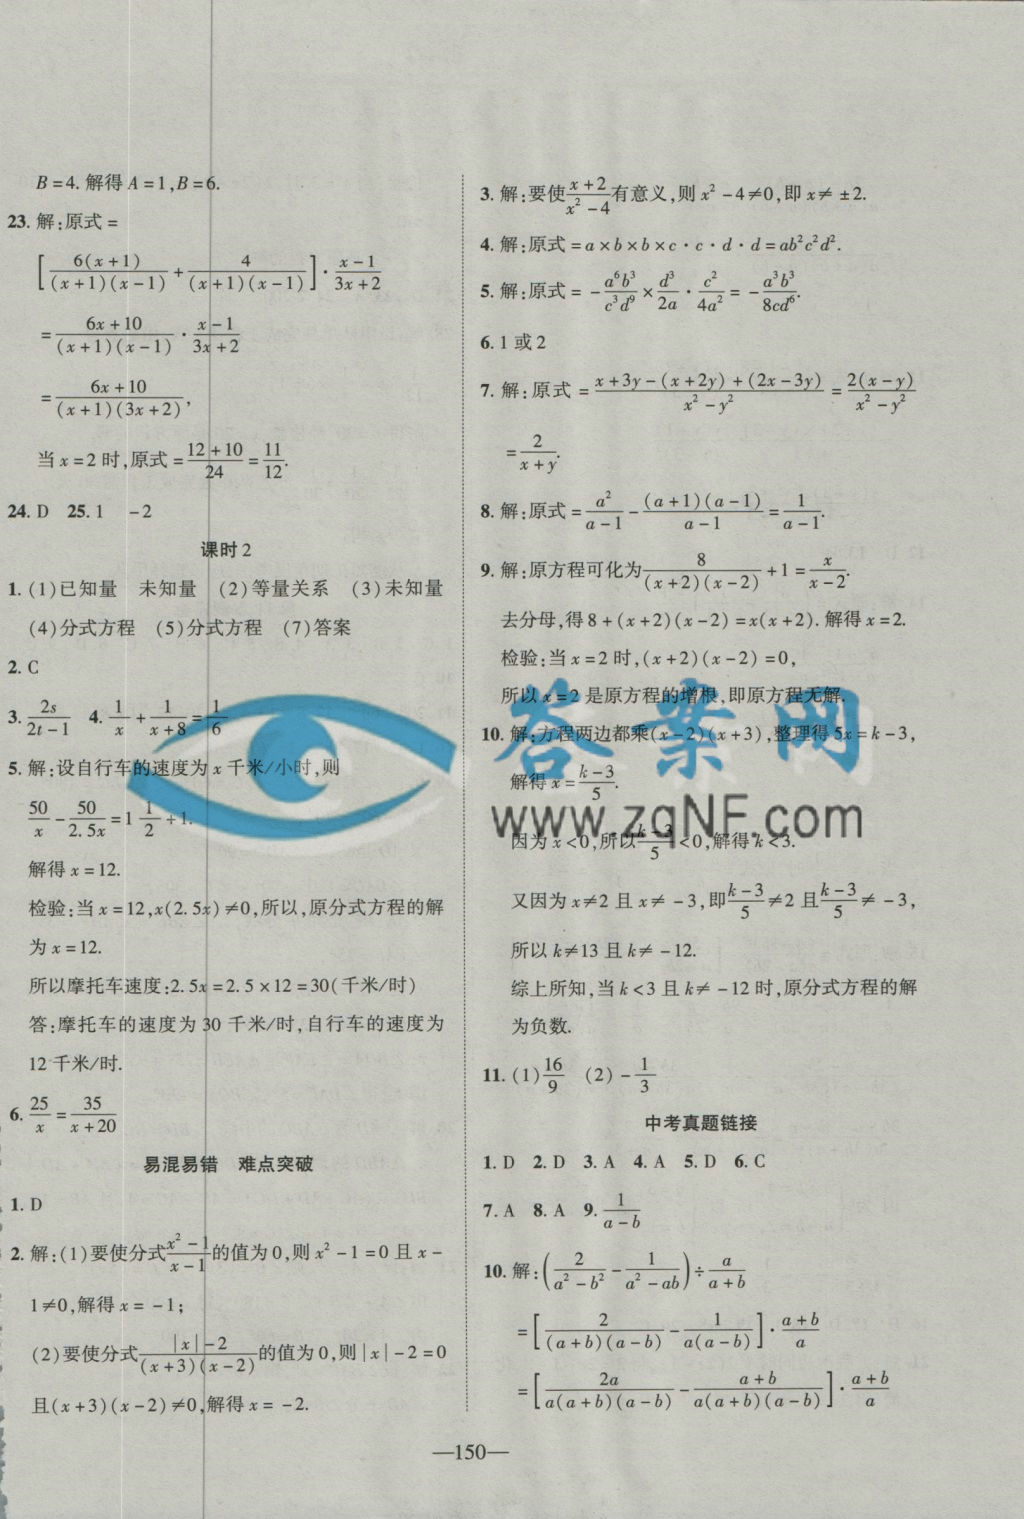 B=4. 解得 A=1,B=6.
23. 解:原式=
[6(x+1)/((x+1)(x-1)) + 4/((x+1)(x-1))]·(x-1)/(3x+2)
=(6x+10)/((x+1)(x-1))·(x-1)/(3x+2)
=(6x+10)/((x+1)(3x+2)),
当 x=2 时,原式=(12+10)/24=11/12.
24. D 25. 1 -2
课时2
1. (1)已知量 未知量 (2)等量关系 (3)未知量
(4)分式方程 (5)分式方程 (7)答案
2. C
3. 2s/(2t-1) 4. 1/x+1/(x+8)=1/6
5. 解:设自行车的速度为 x 千米/小时,则
50/x-50/2.5x=1 1/2+1.
解得 x=12.
检验:当 x=12,x(2.5x)≠0,所以,原分式方程的解
为 x=12.
所以摩托车速度:2.5x=2.5×12=30(千米/时)
答:摩托车的速度为 30 千米/时,自行车的速度为
12 千米/时.
6. 25/x=35/(x+20)
易混易错 难点突破
1. D
2. 解:(1)要使分式(x²-1)/(x-1)的值为0,则 x²-1=0 且 x-
1≠0,解得 x=-1;
(2)要使分式(|x|-2)/((x+3)(x-2))的值为0,则|x|-2=0
且(x+3)(x-2)≠0,解得 x=-2.
3. 解:要使(x+2)/(x²-4)有意义,则 x²-4≠0,即 x≠±2.
4. 解:原式=a×b×b×c·c·d·d=ab²c²d².
5. 解:原式=-a⁶b³/c³d⁹×d³/2a·c²/4a²=-a³b³/8cd⁶.
6. 1 或 2
7. 解:原式=(x+3y-(x+2y)+(2x-3y))/(x²-y²)=2(x-y)/(x²-y²)
=2/(x+y).
8. 解:原式=a²/(a-1)-(a+1)(a-1)/(a-1)=1/(a-1).
9. 解:原方程可化为8/((x+2)(x-2))+1=x/(x-2).
去分母,得 8+(x+2)(x-2)=x(x+2). 解得 x=2.
检验:当 x=2 时,(x+2)(x-2)=0,
所以 x=2 是原方程的增根,即原方程无解.
10. 解:方程两边都乘(x-2)(x+3),整理得 5x=k-3,
解得 x=(k-3)/5.
因为 x<0,所以(k-3)/5<0,解得 k<3.
又因为 x≠2 且 x≠-3,即(k-3)/5≠2 且(k-3)/5≠-3,
所以 k≠13 且 k≠-12.
综上所知,当 k<3 且 k≠-12 时,原分式方程的解
为负数.
11. (1)16/9 (2)-1/3
中考真题链接
1. D 2. D 3. A 4. A 5. D 6. C
7. A 8. A 9. 1/(a-b)
10. 解:(2/(a²-b²)-1/(a²-ab))÷a/(a+b)
=[2/((a+b)(a-b))-1/(a(a-b))]·(a+b)/a
=[2a/(a(a+b)(a-b))-(a+b)/(a(a+b)(a-b))]·(a+b)/a
答案网
www.zqNF.com
—150—